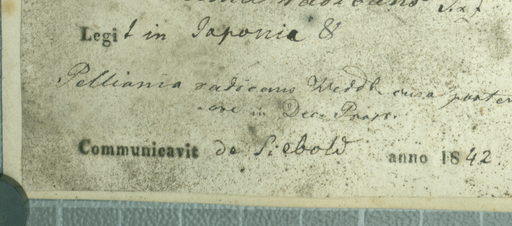 radicans
Legit in Japonia &
Pelliania radicans Wedd.
in Dec. Prodr.
Communicavit de Siebold anno 1842.